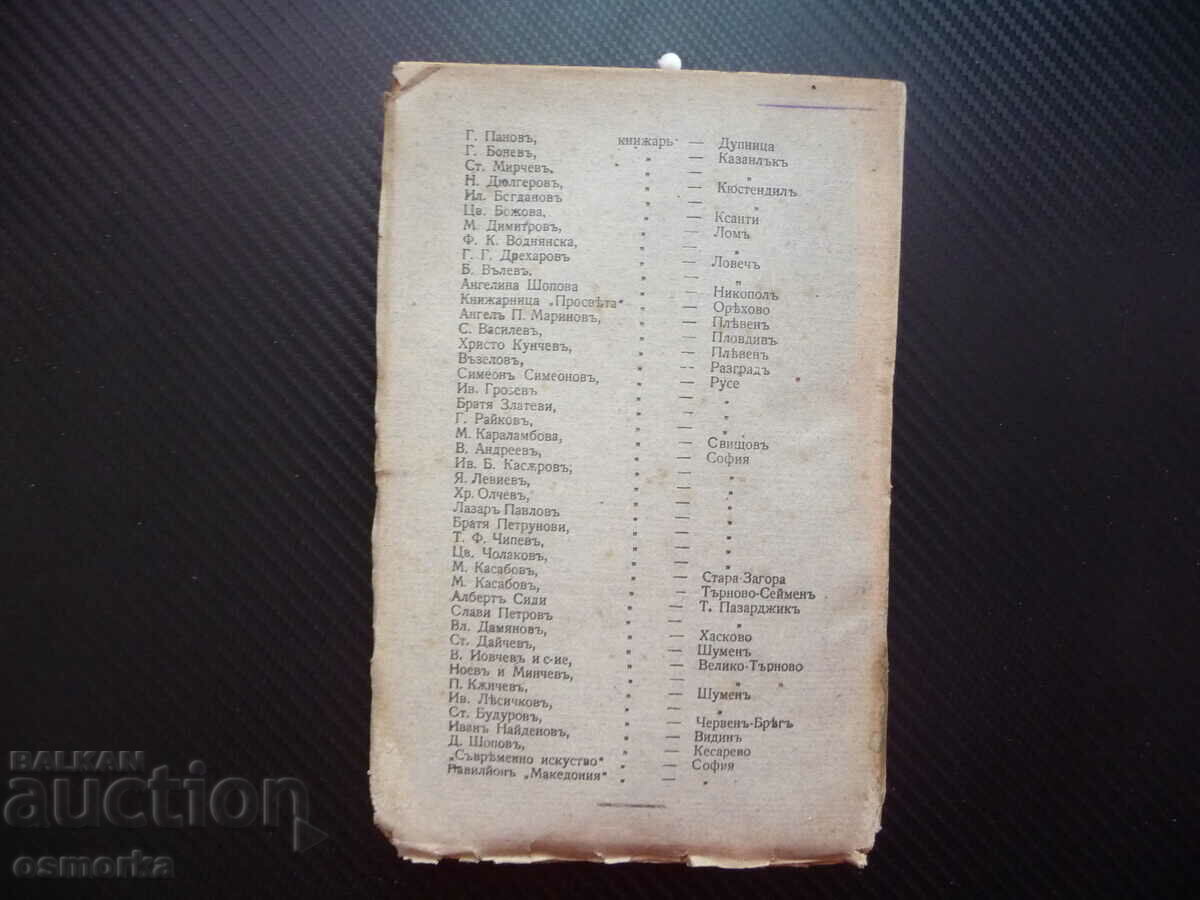 Г. Пановъ, книжарь — Дупница
Г. Боневъ, " — Казанлъкъ
Ст. Мирчев. " — "
Н. Дюлгеровъ, " — Кюстендилъ
Ил. Богдановъ " — "
Цв. Божова, " — Ксанти
М. Димитровъ, " — Ломъ
Ф. К. Воднянска, " — "
Г. Г. Дрехаровъ " — Ловечъ
Б. Вълев. " — "
Ангелива Шопова " — Никополъ
Книжарница „Просвѣта" " — Орѣхово
Ангелъ П. Мариновъ, " — Плѣвенъ
С. Василевъ, " — Пловдивъ
Христо Кунчевъ, " — Плѣвенъ
Възеловъ, " — Разградъ
Симеонъ Симеоновъ, " — Русе
Ив. Грозевъ " — "
Братя Златеви, " — "
Г. Райковъ, " — "
М. Караламбова, " — Свищовъ
В. Андреевъ, " — София
Ив. Б. Касѫровъ, " — "
Я. Левиевъ, " — "
Хр. Олчевъ, " — "
Лазаръ Павловъ " — "
Братя Петрунови, " — "
Т. Ф. Чипевъ, " — "
Цв. Чолаковъ, " — "
М. Касабовъ, " — Стара-Загора
М. Касабовъ, " — Търново-Сейменъ
Албертъ Сиди " — Т. Пазарджикъ
Слави Петровъ " — "
Вл. Дамяновъ, " — Хасково
Ст. Дайчевъ, " — Шуменъ
В. Йовчевъ и с-ие, " — Велико-Търново
Ноевъ и Минчевъ, " — "
П. Кѫнчевъ, " — Шуменъ
Ив. Лѣсичковъ, " — "
Ст. Будуровъ, " — Червенъ-Брѣгъ
Иванъ Найденовъ, " — Видинъ
Д. Шоповъ, " — Кесарево
„Съврѣменно искуство" " — София
Павилйонъ „Македония" " — "
BALKAN
auction
osmorka